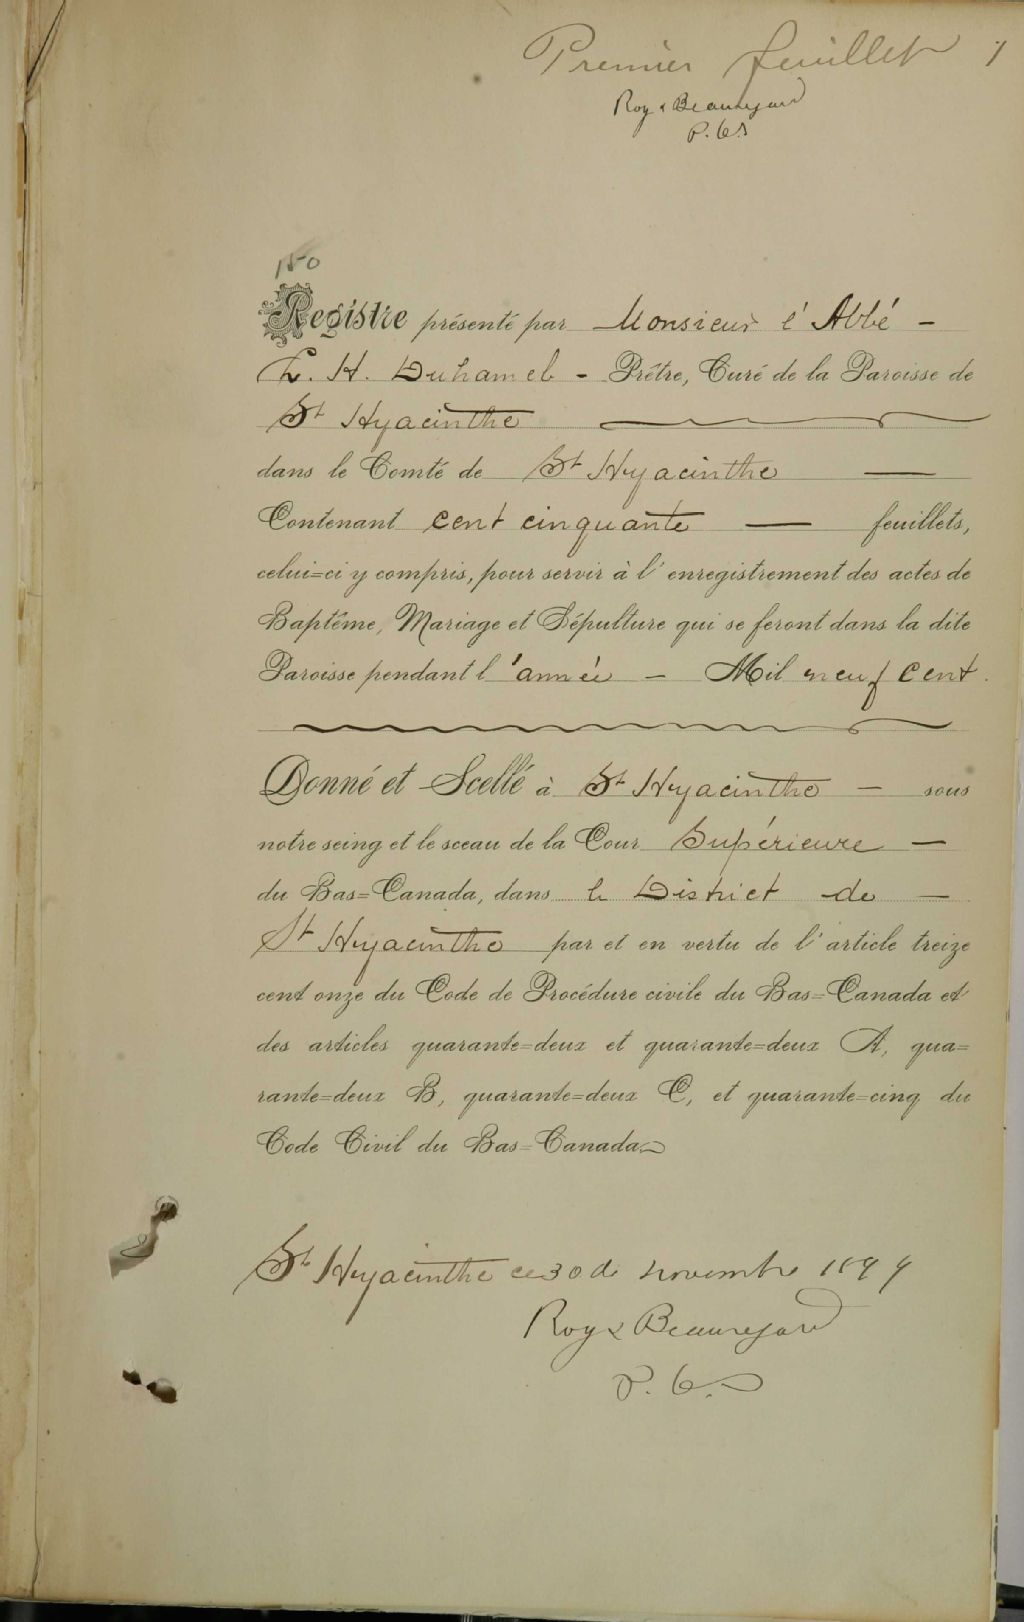 Premier feuillet 1
Roy & Beauregard
P.C.S
150
Registre présenté par Monsieur l'Abbé -
L. H. Duhamel - Prêtre, Curé de la Paroisse de
St Hyacinthe
dans le Comté de St Hyacinthe —
Contenant cent cinquante — feuillets,
celui=ci y compris, pour servir à l'enregistrement des actes de
Baptême, Mariage et Sépulture qui se feront dans la dite
Paroisse pendant l'année — Mil neuf cent.
Donné et Scellé à St Hyacinthe — sous
notre seing et le sceau de la Cour Supérieure —
du Bas=Canada, dans le District de —
St Hyacinthe par et en vertu de l'article treize
cent onze du Code de Procédure civile du Bas=Canada et
des articles quarante=deux et quarante=deux A, qua=
rante=deux B, quarante=deux C, et quarante=cinq du
Code Civil du Bas=Canada
St Hyacinthe ce 30 de novembre 1899
Roy & Beauregard
P.C.S